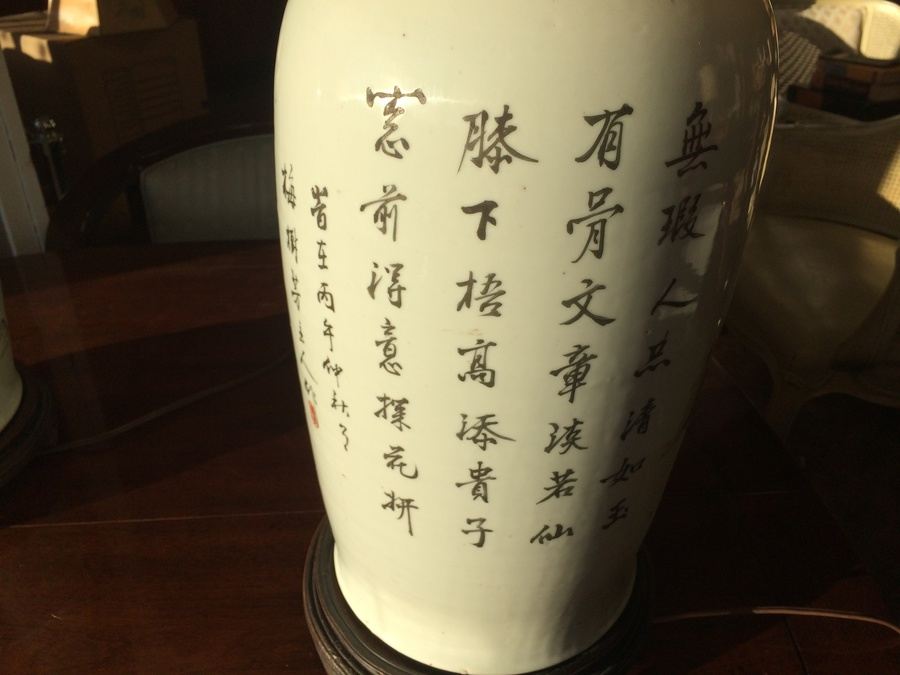 無瑕人品清如玉
有骨文章淡若仙
膝下梧高添貴子
窓前得意探花妍
岢在丙午仲秋月
梅樹芳主人作